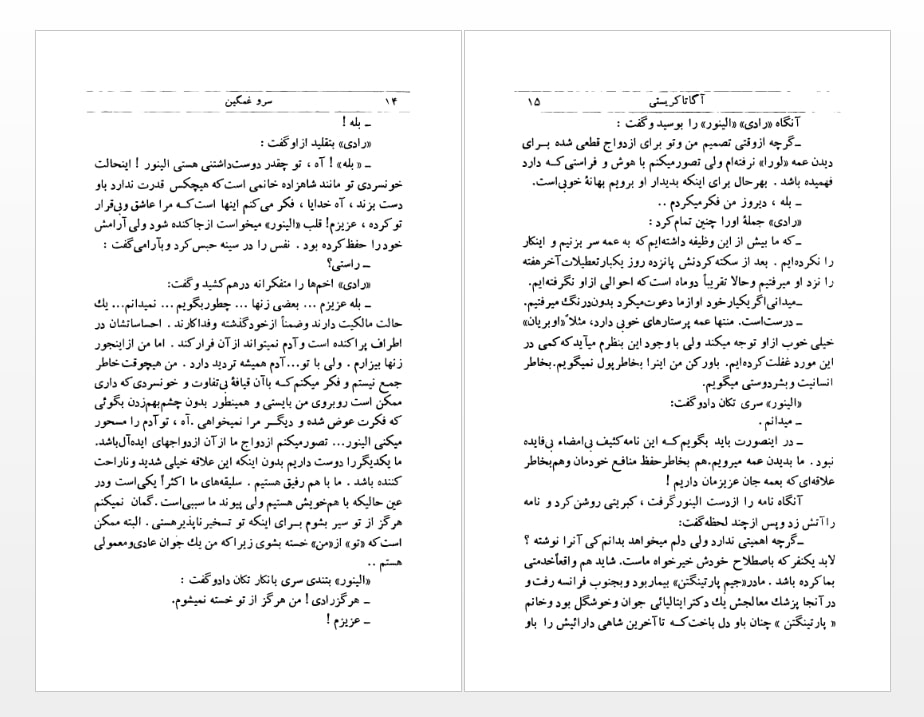 ۱۴ سرو غمگین
ـ بله !
«رادی» بتقلید ازاوگفت :
ـ « بله» ! آه ، تو چقدر دوست‌داشتنی هستی الینور ! اینحالت
خونسردی تو مانند شاهزاده خانمی است‌که هیچکس قدرت ندارد باو
دست بزند ، آه خدایا ، فکر می‌کنم اینها است‌که مرا عاشق وبی‌قرار
توکرده ، عزیزم! قلب «الینور» میخواست ازجاکنده شود ولی آرامش
خودرا حفظ‌کرده بود . نفس را در سینه حبس‌کرد وبآرامی‌گفت :
ـ راستی؟
«رادی» اخم‌ها را متفکرانه درهم‌کشید وگفت:
ـ بله عزیزم ... بعضی زنها ... چطوربگویم ... نمیدانم... یك
حالت مالکیت دارند وضمناً ازخودگذشته وفداکارند . احساساتشان در
اطراف پراکنده است وآدم نمیتواند ازآن فرارکند . اما من ازاینجور
زنها بیزارم . ولی با تو...آدم همیشه تردید دارد . من هیچوقت خاطر
جمع نیستم و فکر میکنم‌که باآن قیافهٔ بی‌تفاوت و خونسردی‌که داری
ممکن است روبروی من بایستی و همینطور بدون چشم‌بهم‌زدن بگوئی
که فکرت عوض شده و دیگر مرا نمیخواهی .آه ، تو آدم را مسحور
میکنی الینور... تصورمیکنم ازدواج ما ازآن ازدواجهای ایده‌آل‌باشد.
ما یکدیگررا دوست داریم بدون اینکه این علاقه خیلی شدید وناراحت
کننده باشد . ما با هم رفیق هستیم . سلیقه‌های ما اکثراً یکی‌است ودر
عین حالیکه با هم‌خویش هستیم ولی پیوند ما سببی‌است .گمان نمیکنم
هرگز از تو سیر بشوم برای اینکه تو تسخیرناپذیرهستی . البته ممکن
است‌که «تو» از«من» خسته بشوی زیراکه من یك جوان عادی‌ومعمولی
هستم ..
«الینور» بتندی سری بانکار تکان دادوگفت :
ـ هرگزرادی ! من هرگز از تو خسته نمیشوم.
ـ عزیزم !
آگاتاکریستی ۱۵
آنگاه «رادی» «الینور» را بوسید وگفت :
ـ‌گرچه ازوقتی تصمیم من وتو برای ازدواج قطعی شده برای
دیدن عمه «لورا» نرفته‌ام ولی تصورمیکنم با هوش و فراستی‌که دارد
فهمیده باشد . بهرحال برای اینکه بدیدار او برویم بهانهٔ خوبی‌است.
ـ بله ، دیروز من فکرمیکردم ..
«رادی» جملهٔ اورا چنین تمام‌کرد :
ـ‌که ما بیش از این وظیفه داشته‌ایم‌که به عمه سر بزنیم و اینکار
را نکرده‌ایم . بعد از سکته‌کردنش پانزده روز یکبارتعطیلات آخرهفته
را نزد او میرفتیم وحالا تقریباً دوماه است‌که احوالی ازاو نگرفته‌ایم.
ـ‌میدانی‌اگریکبارخود اوازما دعوت‌میکرد بدون‌درنگ میرفتیم.
ـ درست‌است. منتها عمه پرستارهای خوبی دارد، مثلا «اوبریان»
خیلی خوب ازاو توجه میکند ولی با وجود این بنظرم میآیدکه‌کمی در
این مورد غفلت کرده‌ایم. باورکن من اینرا بخاطرپول نمیگویم.بخاطر
انسانیت وبشردوستی میگویم.
«الینور» سری تکان دادوگفت:
ـ میدانم .
ـ در اینصورت باید بگویم‌که این نامه‌کثیف بی‌امضاء بی‌فایده
نبود . ما بدیدن عمه میرویم.هم بخاطرحفظ منافع خودمان وهم‌بخاطر
علاقه‌ای‌که بعمه جان عزیزمان داریم !
آنگاه نامه را ازدست الینورگرفت ، کبریتی روشن کرد و نامه
را آتش زد وپس ازچند لحظه‌گفت:
ـ‌گرچه اهمیتی ندارد ولی دلم میخواهد بدانم‌کی آنرا نوشته ؟
لابد یکنفرکه باصطلاح خودش خیرخواه ماست. شاید هم واقعاًخدمتی
بماکرده باشد . مادر«جیم پارتینگتن» بیماربود وبجنوب فرانسه رفت‌و
درآنجا پزشك معالجش یك دکترایتالیائی جوان وخوشگل بود وخانم
« پارتینگتن » چنان باو دل باخت‌که تاآخرین شاهی دارائیش را باو